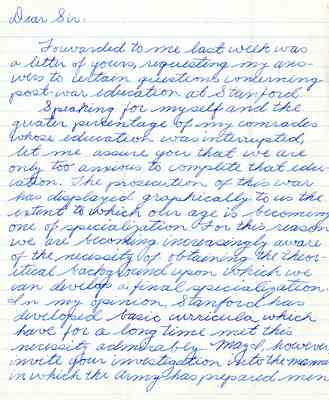 Dear Sir:
Fowarded to me last week was
a letter of yours, requesting my ans-
wers to certain questions concerning
post-war education at Stanford
Speaking for myself and the
greater percentage of my comrades
whose education was interrupted,
let me assure you that we are
only too anxious to complete that edu-
cation. The prosecution of this war
has displayed graphically to us the
extent to which our age is becoming
one of specialization For this reason
we are becoming increasingly aware
of the necessity of obtaining the theor-
itical background upon which we
can develop a final specialization.
In my opinion, Stanford has
developed basic curricula which
have for a long time met this
necessity admirably. May I, however,
invite your investigation into the manner
in which the Army has prepared men